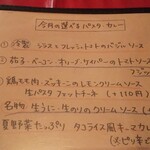 今月の選べるパスタ・カレー
① 冷製 シラスとフレッシュトマトのバジルソース
② 茄子・ベーコン オリーブ・ケイパーのトマトソース
③ 鶏もも肉・ズッキーニのレモンクリームソース
生パスタ フェットチーネ (+110円)
名物 生うに・生のりのクリームソース
夏野菜たっぷり タコライス風キーマカレー